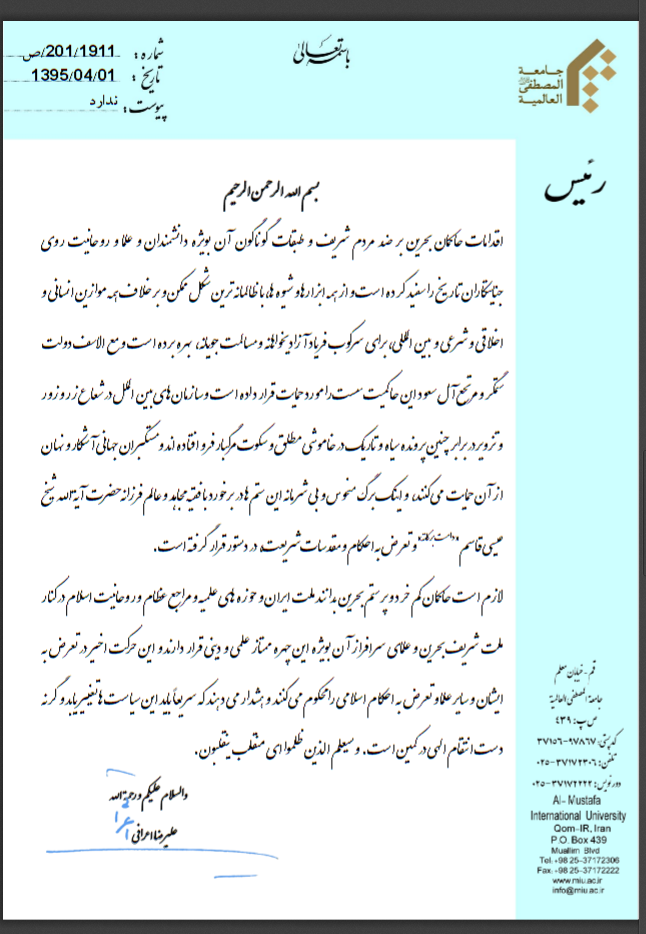 باسمه تعالی
شماره: 201/1911/ص
تاریخ: 1395/04/01
پیوست: ندارد
جامعة
المصطفی
العالمیة
رئیس
بسم الله الرحمن الرحیم
اقدامات حاکمان بحرین بر ضد مردم شریف و طبقات گوناگون آن بویژه دانشمندان و علما و روحانیت روی
جنایتکاران تاریخ را سفید کرده است و از همه ابزارها و شیوه ها، با ظالمانه ترین شکل ممکن و برخلاف همه موازین انسانی و
اخلاقی و شرعی و بین المللی، برای سرکوب فریاد آزادیخواهانه و مسالمت جویانه، بهره برده است و مع الاسف دولت
ستمگر و مرتجع آل سعود این حاکمیت سست را مورد حمایت قرار داده است و سازمان های بین الملل در شعاع زر و زور
و تزویر در برابر چنین پرونده سیاه و تاریک در خاموشی مطلق و سکوت مرگبار فرو افتاده اند و مستکبران جهانی آشکار و نهان
از آن حمایت می کنند، و اینک برگ منحوس و بی شرمانه این ستم ها در برخورد با فقیه مجاهد و عالم فرزانه حضرت آیة الله شیخ
عیسی قاسم "دامت برکاته" و تعرض به احکام و مقدسات شریعت، در دستور قرار گرفته است.
لازم است حاکمان کم خرد و پرستم بحرین بدانند ملت ایران و حوزه های علمیه و مراجع عظام و روحانیت اسلام در کنار
ملت شریف بحرین و علمای سرافراز آن بویژه این چهره ممتاز علمی و دینی قرار دارند و این حرکت اخیر در تعرض به
ایشان و سایر علما و تعرض به احکام اسلامی را محکوم می کنند و هشدار می دهند که سریعاً باید این سیاست ها تغییر یابد و گرنه
دست انتقام الهی در کمین است. و سیعلم الذین ظلموا ای منقلب ینقلبون.
والسلام علیکم و رحمة الله
علیرضا اعرافی
قم - خیابان معلم
جامعة المصطفی العالمیة
ص پ: ۴۳۹
کدپستی: ۹۷۸۶۷-۳۷۱۵۶
تلفن: ۳۷۱۷۲۳۰۶-۰۲۵
دورنویس: ۳۷۱۷۲۲۲۲-۰۲۵
Al- Mustafa
International University
Qom-IR, Iran
P.O. Box 439
Muallim Blvd
Tel:+98 25-37172306
Fax:+98 25-37172222
www.miu.ac.ir
info@miu.ac.ir